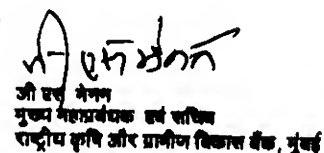 जी एस मेनन
जी एस मेनन
मुख्य महाप्रबंधक एवं सचिव
राष्ट्रीय कृषि और ग्रामीण विकास बैंक, मुंबई